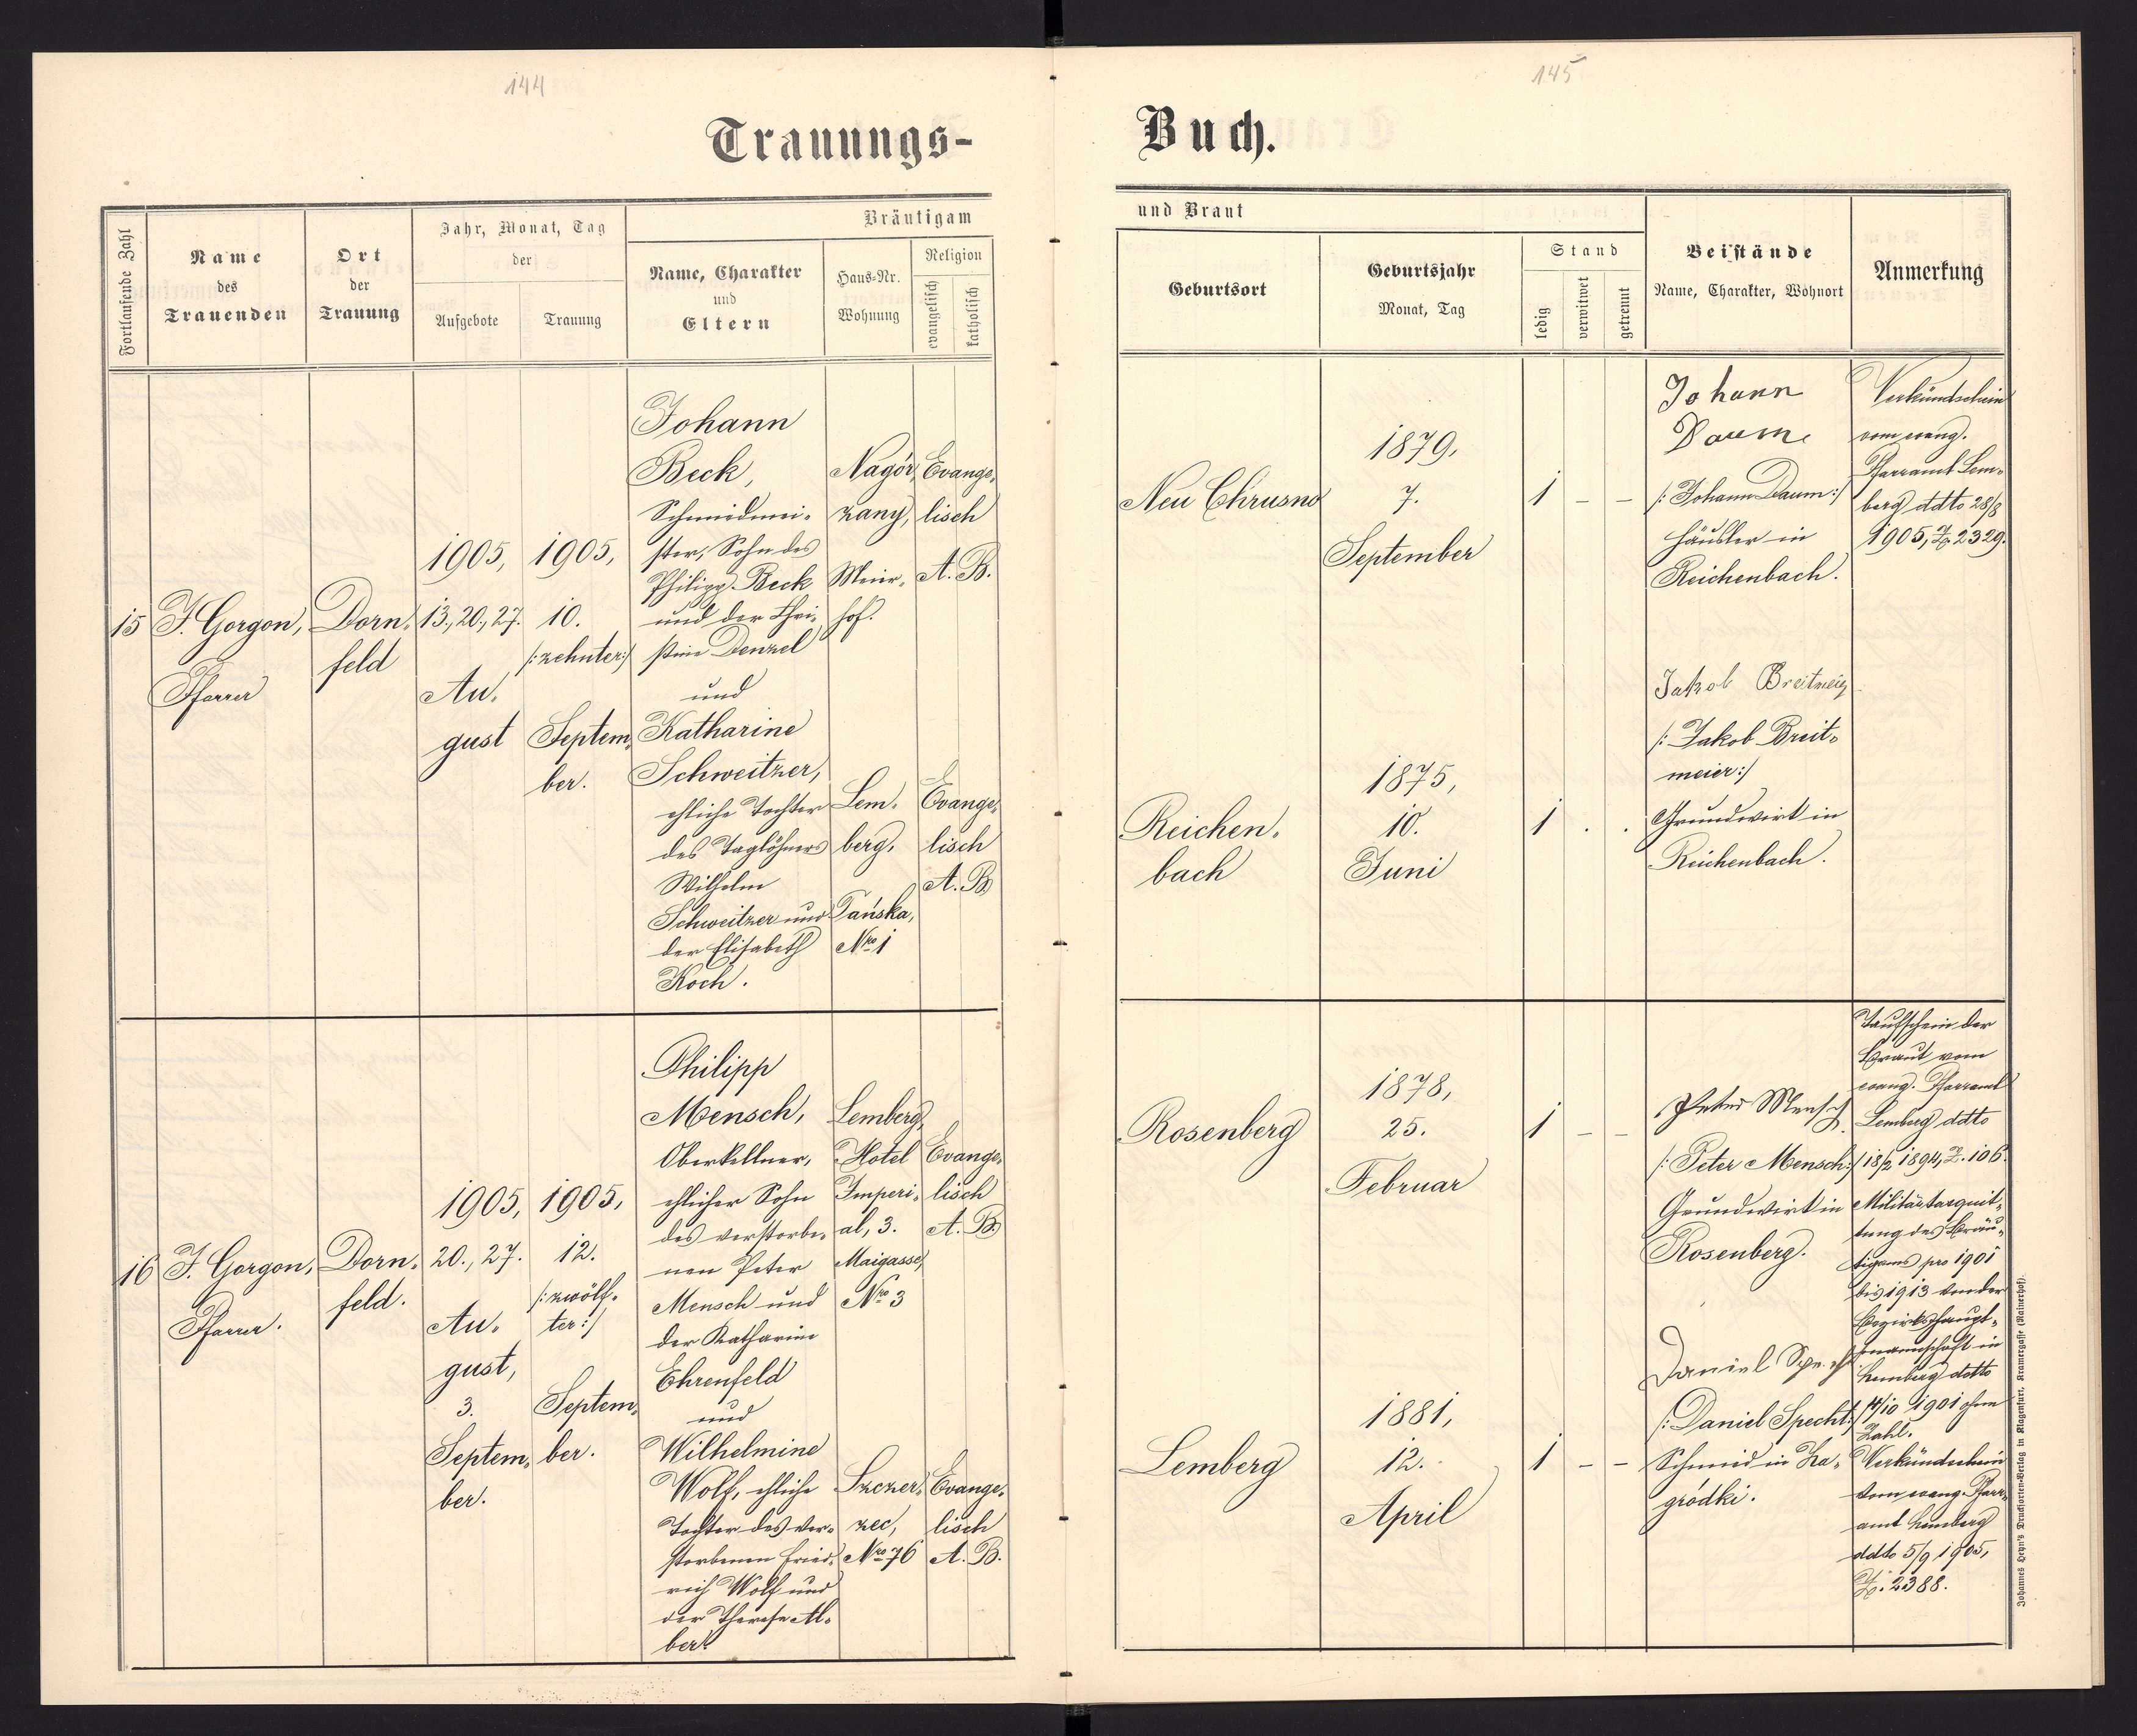 144
Trauungs-
Fortlaufende Zahl
Name
des
Trauenden
Ort
der
Trauung
Jahr, Monat, Tag
der
Aufgebote
Trauung
Bräutigam
Name, Charakter
und
Eltern
Haus-Nr.
Wohnung
Religion
evangelisch
katholisch
15
J. Gorgon,
Pfarrer
Dorn-
feld
1905,
13., 20., 27.
Au-
gust
1905,
10.
/: zehnter :/
Septem-
ber.
Johann
Beck,
Schmiedmei-
ster, Sohn des
Philipp Beck
und der Chri-
stine Denzel
und
Katharine
Schweitzer,
ehliche Tochter
des Taglöhners
Wilhelm
Schweitzer und
der Elisabeth
Koch.
Nagór-
zany,
Meier-
hof.
Evange-
lisch
A. B.
Lem-
berg,
Pańska,
Nro 1
Evange-
lisch
A. B.
16
J. Gorgon,
Pfarrer.
Dorn-
feld.
1905,
20., 27.
Au-
gust,
3.
Septem-
ber.
1905,
12.
/: zwölf-
ter :/
Septem-
ber.
Philipp
Mensch,
Oberkellner,
ehlicher Sohn
des verstorbe-
nen Peter
Mensch und
der Katharine
Ehrenfeld
und
Wilhelmine
Wolf, ehliche
Tochter des ver-
storbenen Fried-
rich Wolf und
der Therese Al-
ber.
Lemberg,
Hotel
Imperi-
al, 3.
Maigasse,
Nro 3
Evange-
lisch
A. B.
Szczer-
zec,
Nro 76
Evange-
lisch
A. B.
145
Buch.
und Braut
Geburtsort
Geburtsjahr
Monat, Tag
Stand
ledig
verwitwet
getrennt
Beistände
Name, Charakter, Wohnort
Anmerkung
Neu Chrusno
1879,
7.
September
1 - -
Johann
Daum
/: Johann Daum :/
Häusler in
Reichenbach.
Verkündschein
vom evang.
Pfarramt Lem-
berg ddto 28/8
1905, Z. 2329.
Reichen-
bach
1875,
10.
Juni
1 . .
Jakob Breitmeier
/: Jakob Breit-
meier :/
Grundwirt in
Reichenbach.
Rosenberg
1878,
25.
Februar
1 - -
Peter Mensch
/: Peter Mensch :/
Grundwirt in
Rosenberg.
Taufschein der
Braut vom
evang. Pfarramt
Lemberg ddto
18/2 1894, Z. 106.
Militärtaxquit-
tung des Bräu-
tigams pro 1901
bis 1913 von der
Bezirkshaupt-
mannschaft in
Lemberg ddto
14/10 1901 ohne
Zahl.
Verkündschein
vom evang. Pfarr-
amt Lemberg
ddto 5/9 1905,
Z. 2388.
Lemberg
1881,
12.
April
1 - -
Daniel Specht
/: Daniel Specht :/
Schmied in Za-
gródki.
Johannes Heyn's Drucksorten-Verlag in Klagenfurt, Kramergasse (Rainerhof).